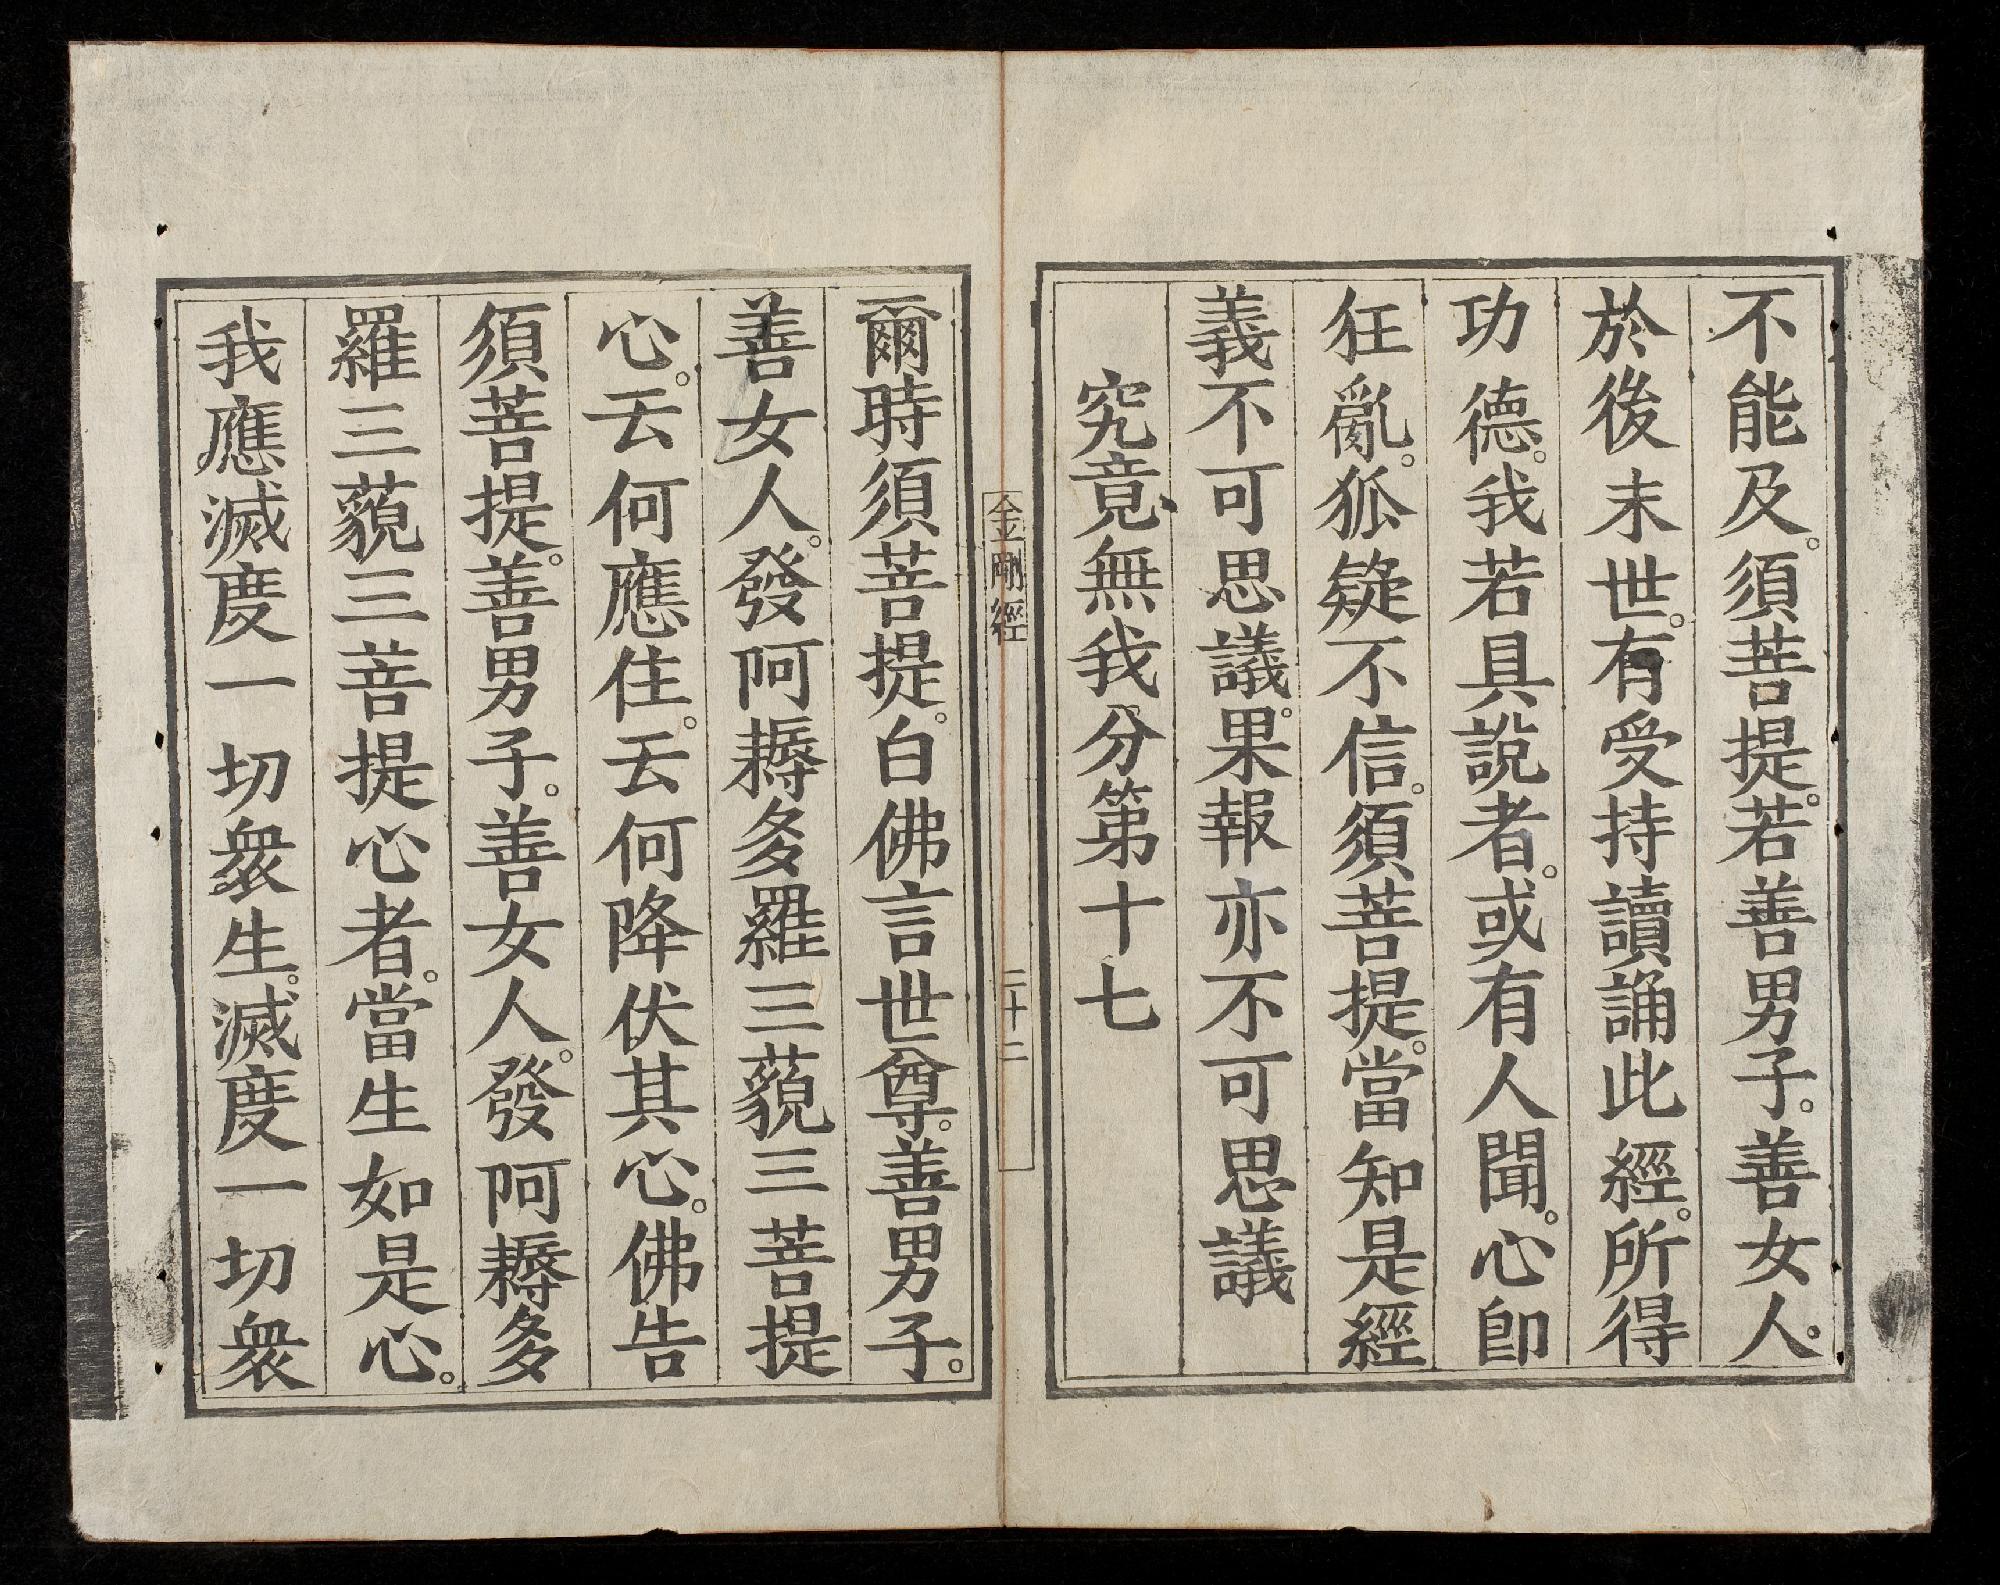 不能及。須菩提。若善男子。善女人。
於後末世。有受持讀誦此經。所得
功德。我若具說者。或有人聞。心即
狂亂。狐疑不信。須菩提。當知是經
義不可思議。果報亦不可思議
究竟無我分第十七
金剛經
二十二
爾時須菩提。白佛言世尊。善男子。
善女人。發阿耨多羅三藐三菩提
心。云何應住。云何降伏其心。佛告
須菩提。善男子。善女人。發阿耨多
羅三藐三菩提心者。當生如是心。
我應滅度一切衆生。滅度一切衆